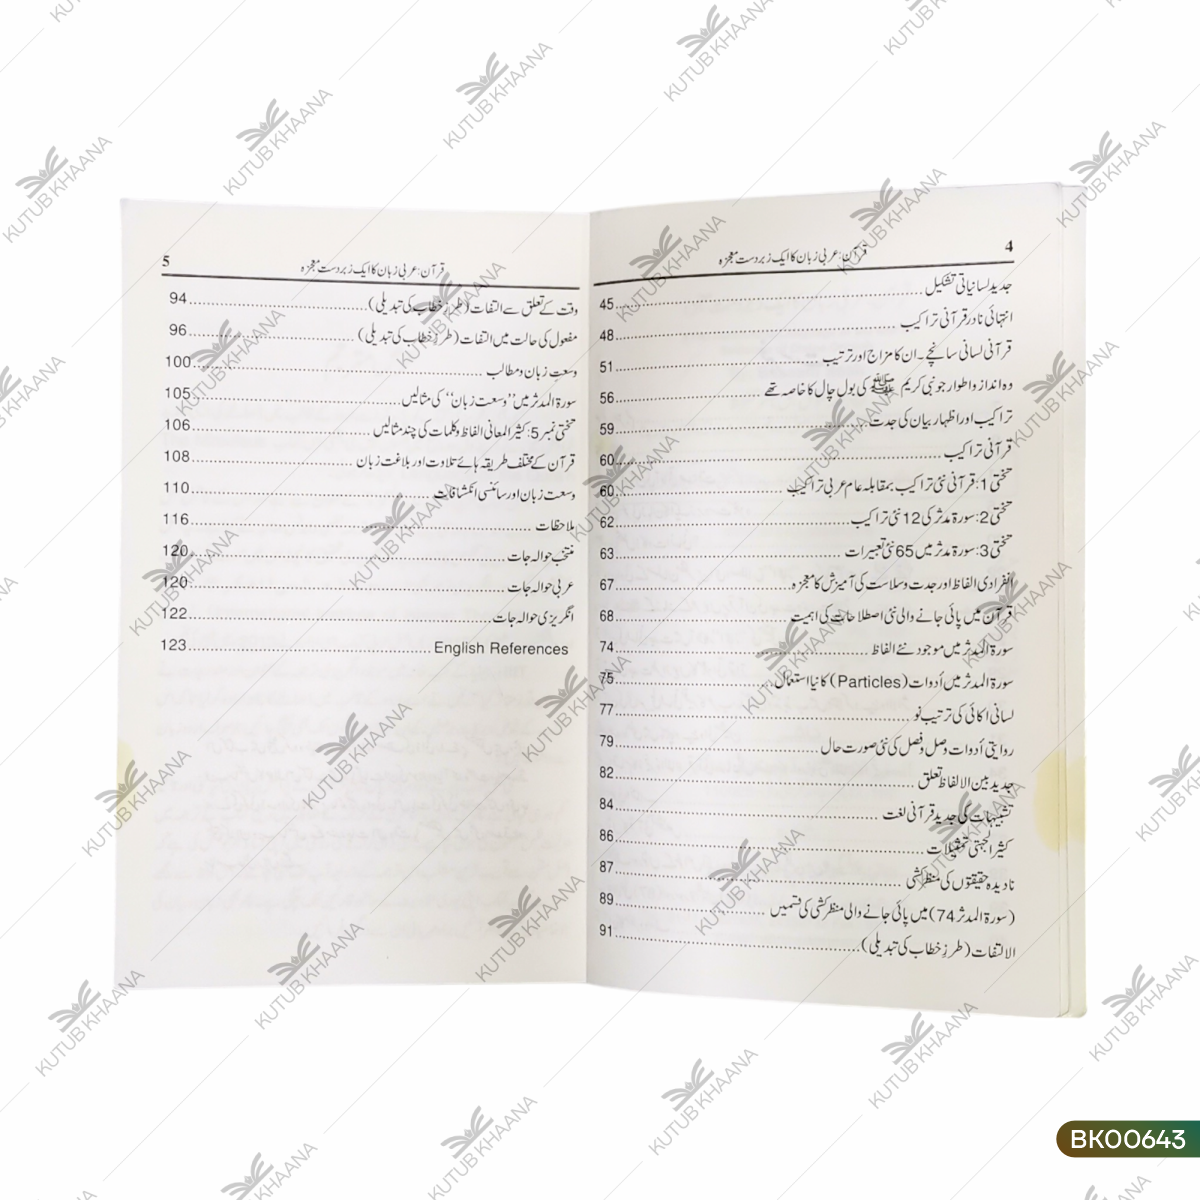 4
قرآن: عربی زبان کا ایک زبردست معجزہ
جدید لسانیاتی تشکیل ........ 45
انتہائی نادر قرآنی تراکیب ........ 48
قرآنی لسانی سانچے۔ ان کا مزاج اور ترتیب ........ 51
وہ انداز و اطوار جو نبی کریم ﷺ کی بول چال کا خاصہ تھے ........ 56
تراکیب اور اظہار بیان کی جدت ........ 59
قرآنی تراکیب ........ 60
تختی 1: قرآنی نئی تراکیب بمقابلہ عام عربی تراکیب ........ 60
تختی 2: سورۃ مدثر کی 12 نئی تراکیب ........ 62
تختی 3: سورۃ مدثر میں 65 نئی تعبیرات ........ 63
انفرادی الفاظ اور جدت و سلاست کی آمیزش کا معجزہ ........ 67
قرآن میں پائی جانے والی نئی اصطلاحات کی اہمیت ........ 68
سورۃ المدثر میں موجود نئے الفاظ ........ 74
سورۃ المدثر میں أدوات (Particles) کا نیا استعمال ........ 75
لسانی اکائی کی ترتیب نو ........ 77
روایتی أدوات وصل و فصل کی نئی صورت حال ........ 79
جدید بین الالفاظ تعلق ........ 82
تشبیہات کی جدید قرآنی لغت ........ 84
کثیر الجہتی تمثیلات ........ 86
نادیدہ حقیقتوں کی منظر کشی ........ 87
(سورۃ المدثر 74) میں پائی جانے والی منظر کشی کی قسمیں ........ 89
الالتفات (طرز خطاب کی تبدیلی) ........ 91
5
قرآن: عربی زبان کا ایک زبردست معجزہ
وقت کے تعلق سے التفات (طرز خطاب کی تبدیلی) ........ 94
مفعول کی حالت میں التفات (طرز خطاب کی تبدیلی) ........ 96
وسعتِ زبان و مطالب ........ 100
سورۃ المدثر میں ''وسعت زبان'' کی مثالیں ........ 105
تختی نمبر 5: کثیر المعانی الفاظ و کلمات کی چند مثالیں ........ 106
قرآن کے مختلف طریقہ ہائے تلاوت اور بلاغت زبان ........ 108
وسعت زبان اور سائنسی انکشافات ........ 110
ملاحظات ........ 116
منتخب حوالہ جات ........ 120
عربی حوالہ جات ........ 120
انگریزی حوالہ جات ........ 122
English References ........ 123
KUTUB KHAANA
BK00643